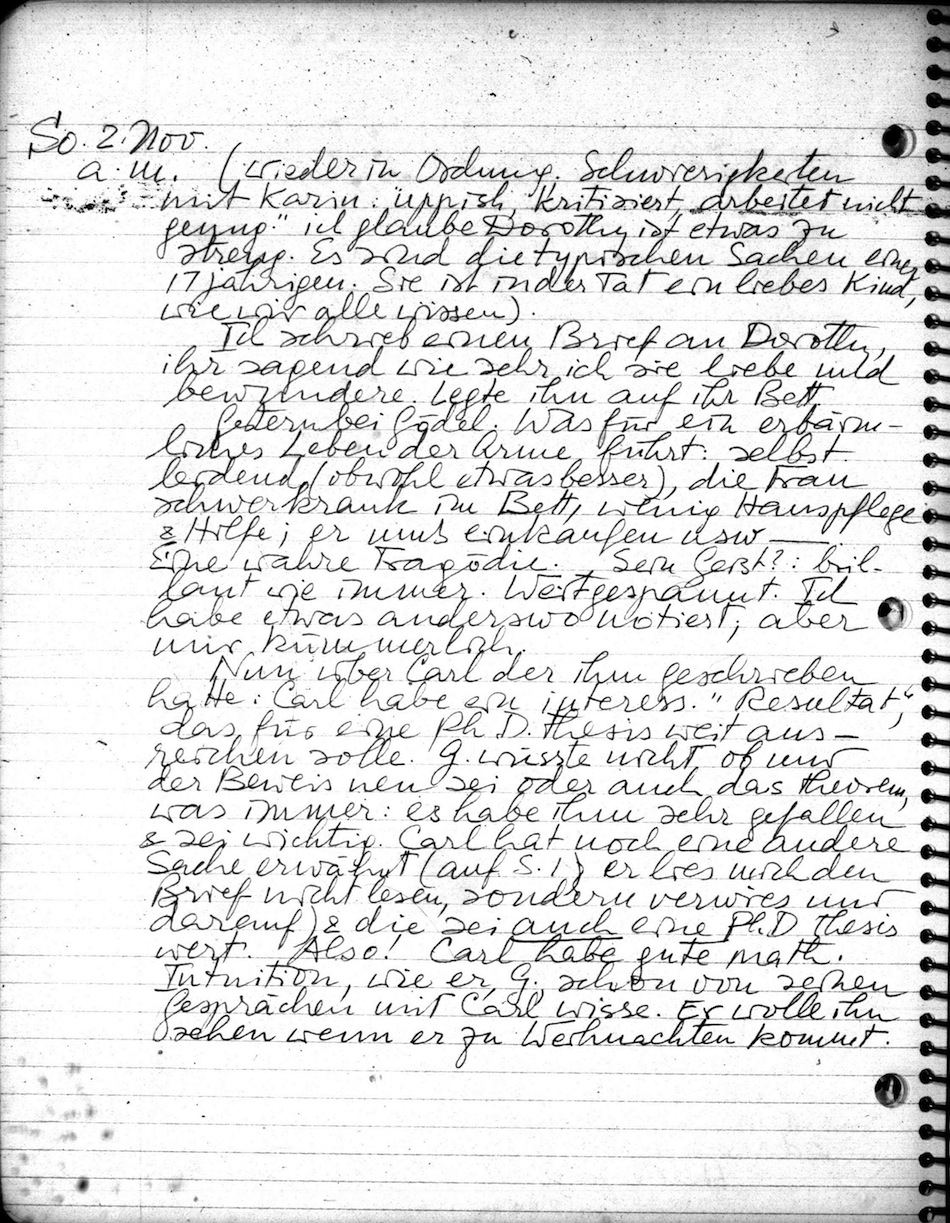 So. 2. Nov.
a.m. (wieder in Ordnung. Schwierigkeiten
mit Karin: üppish, "kritisiert, arbeitet nicht
genug." ich glaube Dorothy ist etwas zu
streng. Es sind die typischen Sachen einer
17 jährigen. Sie ist in der Tat ein liebes Kind,
wie wir alle wissen).
Ich schrieb einen Brief an Dorothy,
ihr sagend wie sehr ich sie liebe und
bewundere. Legte ihn auf ihr Bett.
Gestern bei Gödel. Was für ein erbärm-
liches Leben der Arme führt: selbst
leidend, (obwohl etwas besser), die Frau
schwerkrank im Bett, wenig Hauspflege
& Hilfe; er muss einkaufen usw —
Eine wahre Tragödie. Sein Geist?: bril-
lant wie immer. Weitgespannt. Ich
habe etwas anderswo notiert, aber
nur kümmerlich.
Nun über Carl der ihm geschrieben
hatte: Carl habe ein interess. "Resultat",
das für eine Ph.D. thesis weit aus-
reichen solle. G. wüsste nicht, ob nur
der Beweis neu sei oder auch das theorem,
was immer: es habe ihm sehr gefallen
& sei wichtig. Carl hat noch eine andere
Sache erwähnt (auf S. 1, er lies mich den
Brief nicht lesen, sondern verwies nur
darauf) & die sei auch eine Ph.D thesis
wert. Also! Carl habe gute math.
Intuition, wie er, G. schon von seinen
Gesprächen mit Carl wisse. Er wolle ihn
sehen wenn er zu Weihnachten kommt.